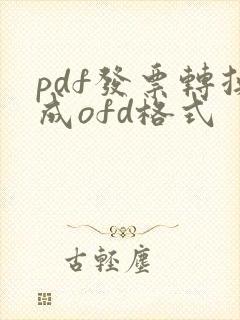 pdf發票轉換
成ofd格式
古輕塵